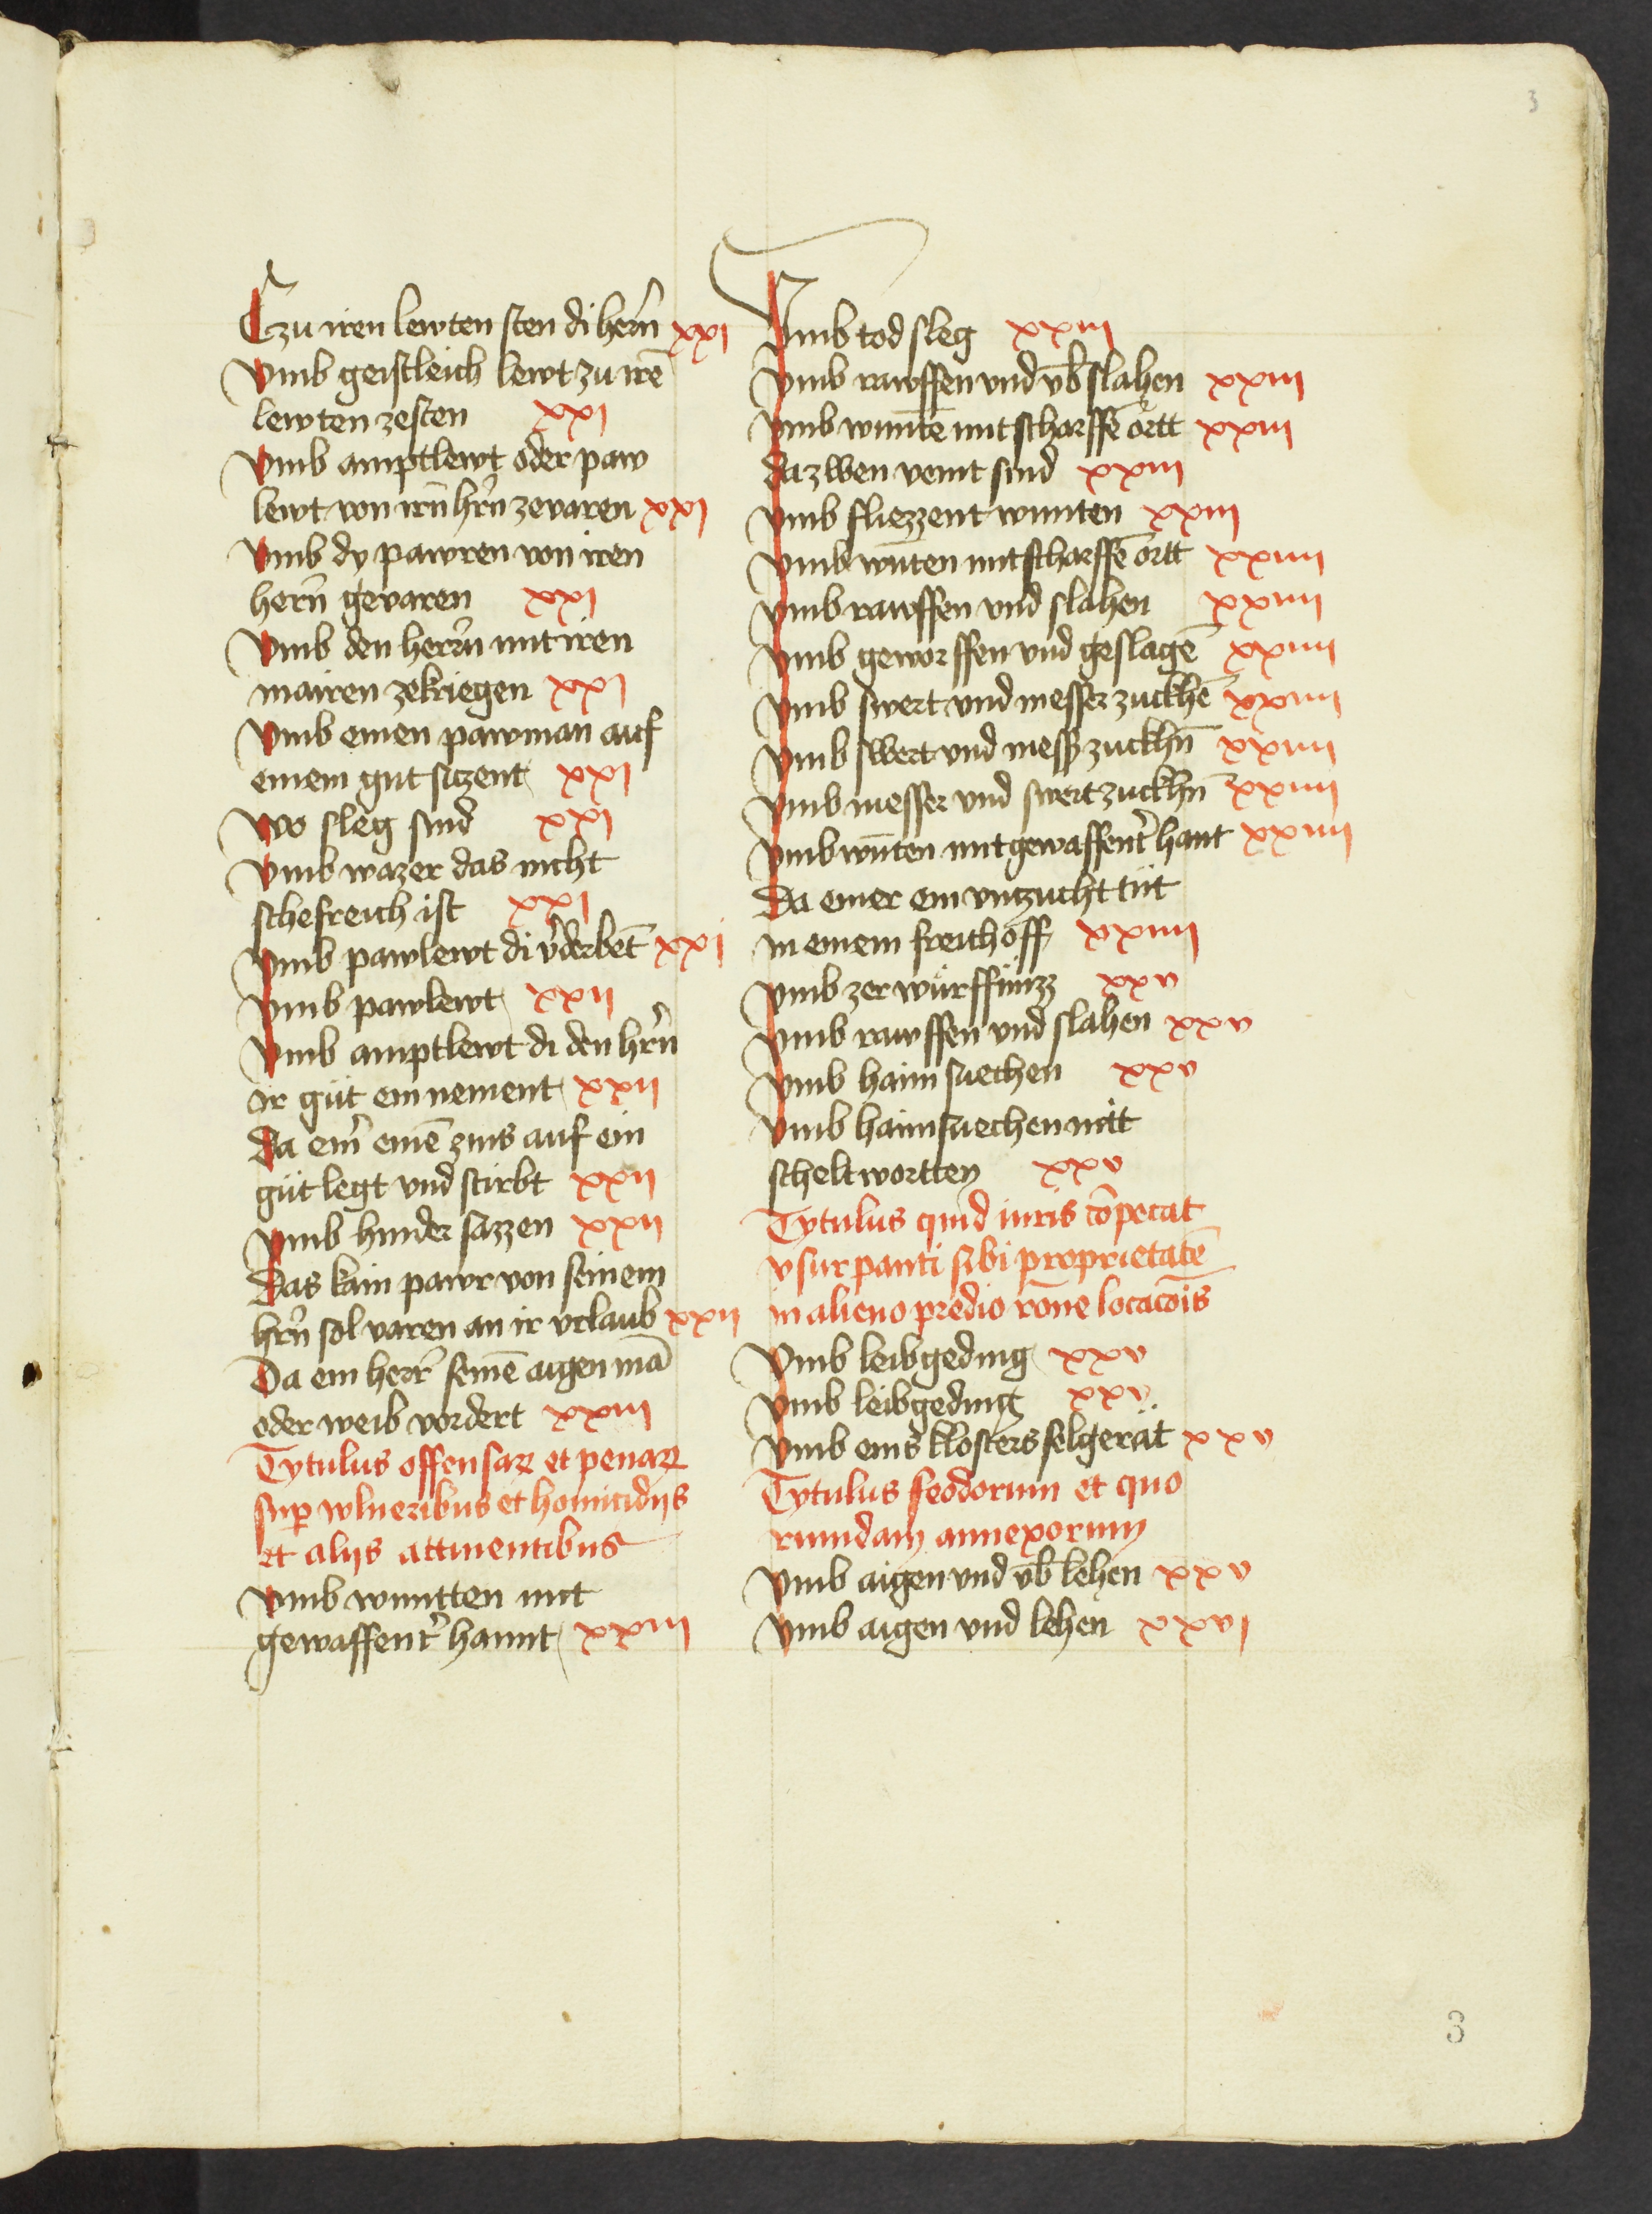 3
Czu iren lewten sten di herñ xxi
Vmb geistleich lewt zu irē
lewten zesten xxi
Vmb amptlewt oder paw
lewt von irn̄ hrñ zevaren xxi
Vmb dy pawren von iren
herñ gevaren xxi
Vmb den herrñ mit iren
mairen zekriegen xxi
Vmb einen pawman auf
einem gut siczent xxi
Wo sleg sind xxi
Vmb wazer das nicht
schefreich ist xxi
Vmb pawlewt di v̾derbēt xxi
Vmb pawlewt xxii
Vmb amptlewt di den hrñ
ir gůt ein nement xxii
Da ein̾ einē zins auf ein
gůt legt vnd stirbt xxii
Vmb hinder sazzen xxii
Das kain pawr von seinem
hrñ sol varen an ir vrlaub xxii
Da ein herr̾ seinē aigen mā
oder weib vordert xxiii
Tytulus offensaꝝ et penaꝝ
suꝑ wlneribus et homicidijs
et alijs attinentibus
Vmb wuntten mit
gewaffent̾ hannt xxiii
Vmb tod sleg xxiii
Vmb rawffen vnd vb̄slahen xxiii
Vmb wuntē mit scharffē ortt xxiii
da zwen veint sind xxiii
Vmb fliezzent wunten xxiii
Vmb wūten mit scharffē ortt xxiiii
Vmb rawffen vnd slahen xxiiii
Vmb geworffen vnd geslagē xxiiii
Vmb swert vnd messer zuckhē xxiiii
Vmb swert vnd mess̾ zuckhn̄ xxiiii
Vmb messer vnd swert zuckhn̄ xxiiii
Vmb wūten mit gewaffent̾ hant xxiiii
Da einer ein vnzucht tůt
in einem freithoff xxiiii
Vmb zerwürffnüzz xxv
Vmb rawffen vnd slahen xxv
Vmb haim suechen xxv
Vmb haimsuechen mit
scheltwortten xxv
Tytulus quid iuris cōpetat
vsurpanti sibi proprietatē
in alieno predio rōne locacōis
Vmb leibgeding xxv
Vmb leibgeding xxv
Vmb eins klosters selgerät xxv
Tytulus feodorum et quo
rumdam annexorum
Vmb aigen vnd vb̄ lehen xxv
Vmb aigen vnd lehen xxvi
3